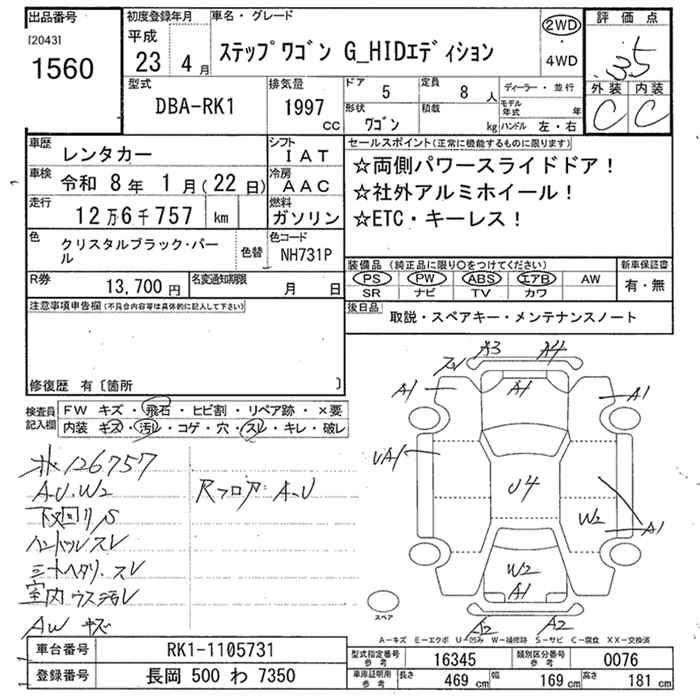 出品番号
[2043]
1560
初度登録年月
平成
23 4月
車名・グレード
ステップワゴン G_HIDエディション
2WD
・
4WD
評価点
3.5
外装 内装
C C
型式
DBA-RK1
排気量
1997
cc
ドア
5
定員
8 人
形状
ワゴン
積載
kg
ディーラー・並行
モデル年式 年
ハンドル 左・右
車歴
レンタカー
シフト
IAT
車検
令和 8年 1月(22日)
冷房
AAC
走行
12万6千757 km
燃料
ガソリン
色
クリスタルブラック・パール
色替
色コード
NH731P
R券
13,700円
名変通知期限
月 日
セールスポイント(正常に機能するものに限ります)
☆両側パワースライドドア!
☆社外アルミホイール!
☆ETC・キーレス!
装備品 (純正品に限り○をつけてください)
PS PW ABS エアB AW
SR ナビ TV カワ
新車保証書
有・無
後日品
取説・スペアキー・メンテナンスノート
注意事項申告欄(不具合内容等は具体的に記入して下さい)
修復歴 有〔箇所 〕
検査員
記入欄
FW キズ・飛石・ヒビ割・リペア跡・×要
内装 キズ・汚レ・コゲ・穴・スレ・キレ・破レ
126757
A.U.W2
RフロアーA.U
下回りS
ハンドルスレ
シートヘタリ.スレ
室内ウス汚レ
AW キズ
A3 A4
A1 A1 A1
UA1
U4
W2 A1
W2
A1
A2 A2
スペア
A-キズ E-エクボ U-凹み W-補修跡 S-サビ C-腐食 XX-交換済
車台番号
RK1-1105731
登録番号
長岡 500 わ 7350
型式指定番号
参考
16345
類別区分番号
参考
0076
車庫証明用
参考
長さ 469 cm 幅 169 cm 高さ 181 cm